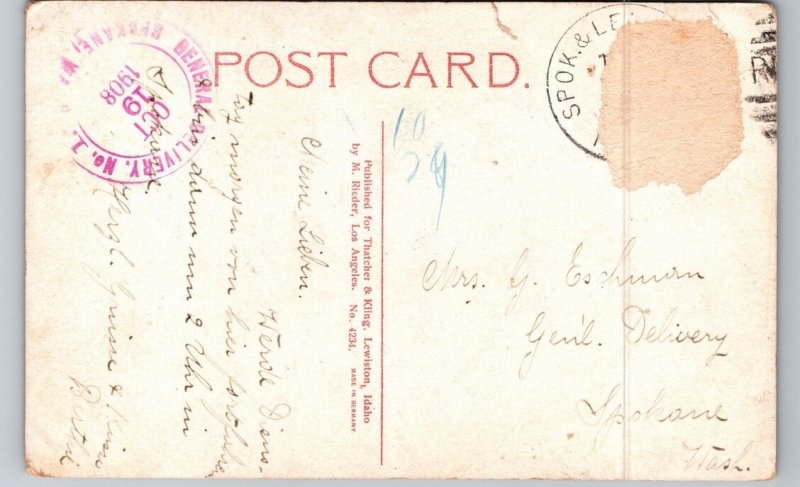 POST CARD.
GENERAL DELIVERY. No. 1.
SPOKANE, W
OCT
19
1908
SPOK. & LE
10
29
Published for Thatcher & Kling, Lewiston, Idaho
by M. Rieder, Los Angeles. No. 4234.
MADE IN GERMANY.
Meine Lieben.
Werde Diens-
tag morgen von hier fortfahren
& bin dann um 2 Uhr in
Spokane.
Herzl. Grüsse & Küsse
Mrs. G. Eschman
Gen'l. Delivery
Spokane
Wash.